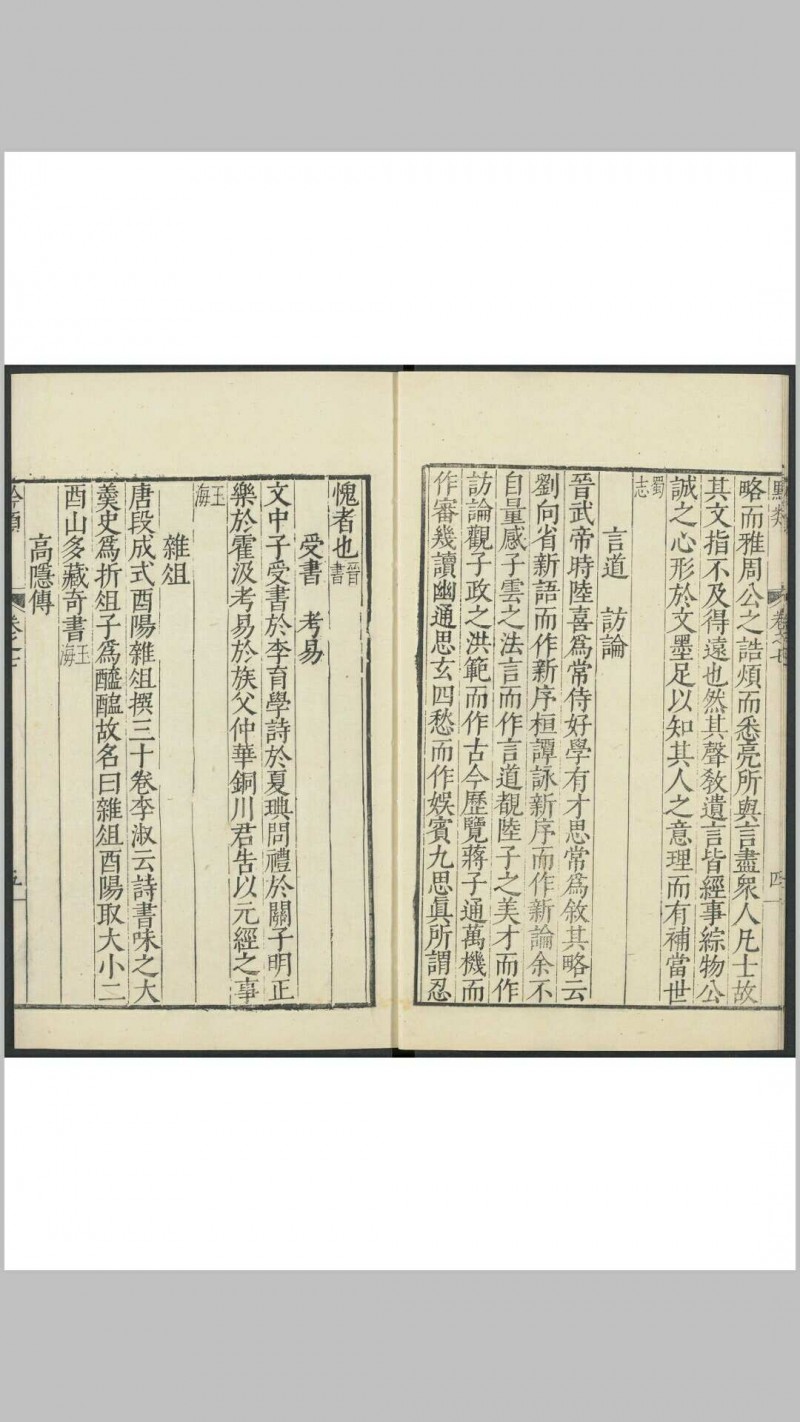 略而雅周公之誥煩而悉亮所與言盡衆人凡士故
其文指不及得遠也然其聲教遺言皆經事綜物公
誠之心形於文墨足以知其人之意理而有補當世
蜀志
言道 訪論
晉武帝時陸喜爲常侍好學有才思常爲敘其略云
劉向省新語而作新序桓譚詠新序而作新論余不
自量感子雲之法言而作言道覩陸子之美才而作
訪論觀子政之洪範而作古今歷覽蔣子通萬機而
作審幾讀幽通思玄四愁而作娛賓九思眞所謂忍
愧者也晉書
受書 考易
文中子受書於李育學詩於夏琠問禮於關子明正
樂於霍汲考易於族父仲華銅川君告以元經之事
玉海
雜俎
唐段成式酉陽雜俎撰三十卷李淑云詩書味之大
羹史爲折俎子爲醯醢故名曰雜俎酉陽取大小二
酉山多藏奇書玉海
高隱傳